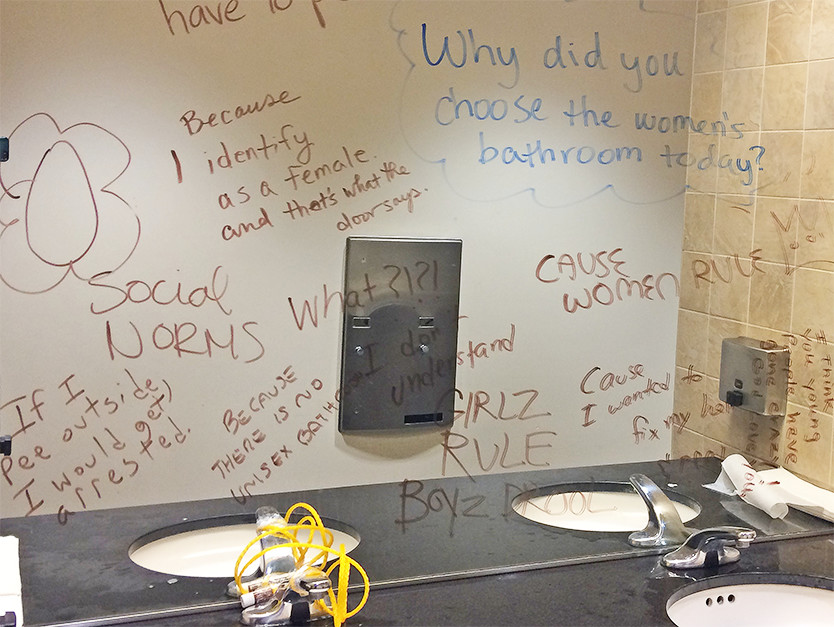 have to p
Why did you
choose the women's
bathroom today?
Because
I identify
as a female.
and that's what the
door says.
Social
NORMS
What?!?!
I don't
understand
CAUSE
WOMEN RULE
If I
pee outside,
I would get
arrested.
BECAUSE
THERE IS NO
UNISEX
GIRLZ
RULE
BOYZ DROOL
Cause
I wanted to
fix my
I THINK
YOU YOUNG
PEOPLE HAVE
GONE CRAZY